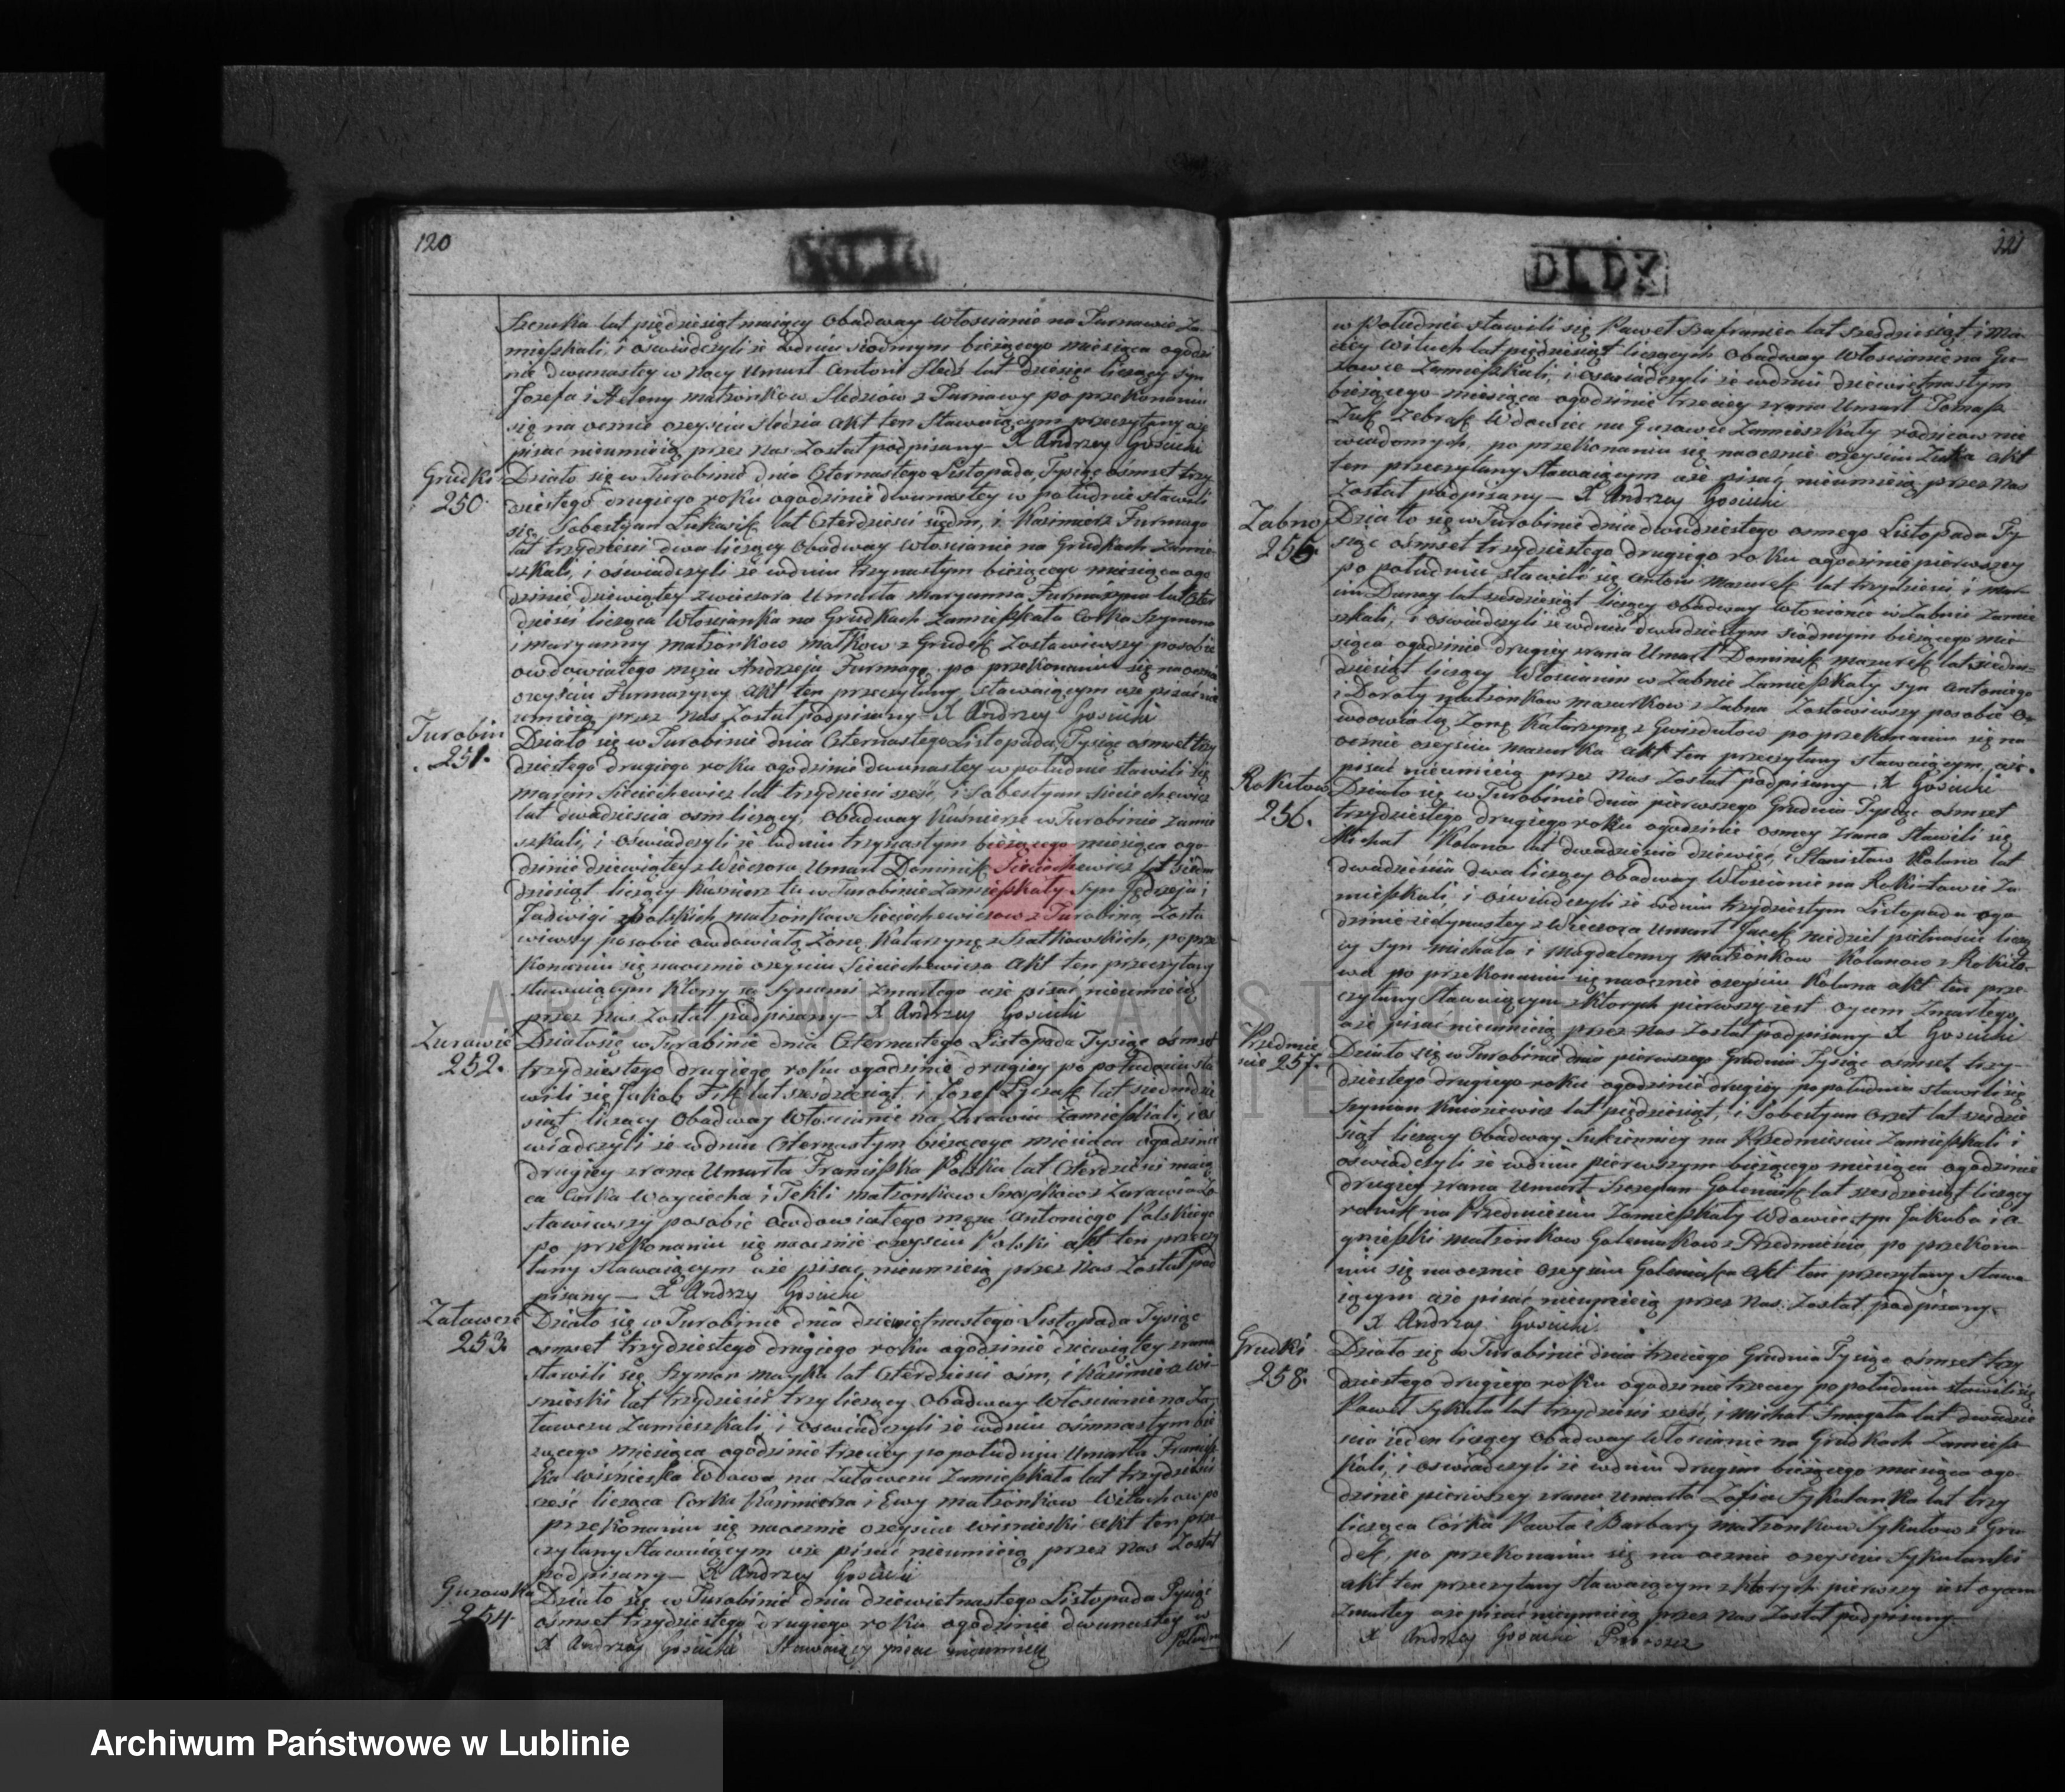 120
Szewka lat piędziesiąt maiący obadway Włoscianie na Tarnawie Za-
mieszkali, i oświadczyli że wdniu siodmym bieżącego miesiąca ogodzi
nie dwunastey w Nocy Umarł Antoni Sledź lat dziesięć liczący syn
Jozefa i Heleny małżonkow Sledziow z Tarnawy po przekonaniu
się na ocznie o zeyściu Sledzia Akt ten Stawaiącym przeczytany iż
pisać nieumieią przez Nas Został podpisany — X Andrzey Gosicki
Grudki
250.
Działo się w Turobinie dnia Czternastego Listopada, Tysiąc osmset trzy
dziestego drugiego roku ogodzinie dwunastey w południe stawili
się, Sobestyan Łukasik lat Czterdzieści siedm, i Kazimierz Furmaga
lat trzydzieści dwa liczący Obadway Włoscianie na Grudkach Zamie-
szkali, i oświadczyli że wdniu trzynastym bieżącego miesiąca ogo
dzinie dziewiątey zwieczora Umarła Maryanna Furmażyna lat Czter
dzieści licząca Włoscianka na Grudkach Zamieszkała Corka Szymona
i Maryanny małżonkow Małkow z Grudek Zostawiwszy posobie
owdowiałego męża Andrzeja Furmagę, po przekonaniu się naocznie
ozeyściu Furmażyny Akt ten przeczytany stawaiącym iże pisać nie
umieią przez Nas Został podpisany X Andrzey Gosicki
Turobin
251.
Działo się w Turobinie dnia Czternastego Listopada, Tysiąc osmset trzy
dziestego drugiego roku ogodzinie dwunastey w południe stawili się
Marcin Sieciechewicz lat trzydzieści sześć, i Sobestyan Sieciechewicz
lat dwadzieścia osm liczący, obadway Kuśnierze w Turobinie zamie
szkali, i oświadczyli że wdniu trzynastym bieżącego miesiąca ogo-
dzinie dziewiątey z Wieczora Umarł Dominik Sieciechewicz lat Siedm
dziesiąt liczący Kuśnierz tu w Turobinie Zamieszkały Syn Jędrzeja i
Jadwigi z Polskich małżonkow Sieciechewiczow z Turobina, Zosta
wiwszy posobie owdowiałą Żonę Katarzynę z Szatkowskich, po prze
konaniu się naocznie ozeyściu Sieciechewicza Akt ten przeczytany
stawaiącym Ktorzy są Synami Zmarłego iże pisać nieumieią
przez Nas Został podpisany — X Andrzey Gosicki
Zurawie
252.
Działo się w Turobinie dnia Czternastego Listopada Tysiąc osmset
trzydziestego drugiego roku ogodzinie drugiey po południu sta
wili się Jakob Fik lat sześdziesiąt i Jozef Łysak lat siedmdzie
siąt liczący Obadway Włoscianie na Zurawiu Zamieszkali, i os
wiadczyli że wdniu Czternastym bieżącego miesiąca ogodzinie
drugiey zrana Umarła Franciszka Polska lat Czterdzieści maią
ca Corka Woyciecha i Tekli małżonkow z Zurawia Zo
stawiwszy posobie owdowiałego męża Antoniego Polskiego
po przekonaniu się naocznie ozeyściu Polski akt ten przeczy
tany stawaiącym iże pisać nieumieią przez Nas Został pod
pisany — X Andrzy Gosicki
Zatawcze
253.
Działo się w Turobinie dnia dziewiętnastego Listopada Tysiąc
osmset trzydziestego drugiego roku ogodzinie dziewiątey zrana
stawili się, Szymon Mayka lat Czterdzieści ośm, i Kazimierz Wi-
snieski lat trzydzieści trzy liczący obadway Włoscianie na Za-
tawczu Zamieszkali, i oświadczyli że wdniu ośmnastym bie
żącego miesiąca ogodzinie trzeciey po południu Umarła Francisz
ka Wiśnieska Wdowa na Zatawczu Zamieszkała lat trzydzieści
sześć licząca Corka Kazimierza i Ewy małżonkow Wituchow po
przekonaniu się naocznie ozeyściu Wisnieski akt ten prze
czytany Stawaiącym iże pisać nieumieią przez Nas Został
podpisany — X Andrzey Gosicki
Guzowka
254.
Działo się w Turobinie dnia dziewiętnastego Listopada Tysiąc
ośmset trzydziestego drugiego roku ogodzinie dwunastey w
X Andrzey Gosicki Stawaiący pisać nieumieią
Połudn
121
DLDZ
w Południe stawili się Paweł Szafraniec lat sześdziesiąt i Ma-
ciey Wituch lat pięćdziesiąt liczących obadway Włoscianie na Gu-
zowce Zamieszkali, i oswiadczyli że wdniu dziewiętnastym
bieżącego miesiąca ogodzinie trzeciey zrana Umarł Tomasz
Żuk Żebrak Wdowiec na Guzowce Zamieszkały rodzicow nie
wiadomych, po przekonaniu się naocznie ozeyściu Żuka akt
ten przeczytany Stawaiącym iże pisać nieumieią przez Nas
Został podpisany — X Andrzey Gosicki
Zabno
255
Działo się w Turobinie dnia dwudziestego osmego Listopada Ty-
siąc ośmset trzydziestego drugiego roku ogodzinie pierwszey
po południu stawili się Antoni Mazurek lat trzydzieści i Mar-
cin Dunay lat sześdziesiąt liczący obadway Włoscianie w Zabnie Zamie
szkali, i oświadczyli że wdniu dwudziestym siodmym bieżącego mie-
siąca ogodzinie drugiey zrana Umarł Dominik Mazurek lat siedm-
dziesiąt liczący Włoscianin w Zabnie Zamieszkały syn Antoniego
i Doroty małżonkow Mazurkow z Zabna Zostawiwszy posobie o-
wdowiałą Zonę Katarzynę z Gwizdałow po przekonaniu się na-
ocznie ozeyściu Mazurka akt ten przeczytany stawaiącym, iże
pisać nieumieią przez Nas Został podpisany X Gosicki
Rokitow
256.
Działo się w Turobinie dnia pierwszego Grudnia Tysiąc ośmset
trzydziestego drugiego roku ogodzinie osmey Zrana Stawili się
Michał Kolano lat dwadzieścia dziewięć, i Stanisław Kolano lat
dwadzieścia dwa liczący Obadway Włoscianie na Rokitowie Za
mieszkali, i oświadczyli że wdniu trzydziestym Listopada ogo-
dzinie iedynastey z Wieczora Umarł Jacek niedziel piętnaście liczą
cy syn Michała i Magdalenny małżonkow Kolanow z Rokito-
wa po przekonaniu się naocznie ozeyściu Kolana akt ten prze-
czytany Stawaiącym z Ktorych pierwszy iest oycem Zmarłego
iże pisać nieumieią przez Nas Został podpisany X Gosicki
Przedmie
ście 257.
Działo się w Turobinie dnia pierwszego Grudnia Tysiąc osmset trzy-
dziestego drugiego roku ogodzinie drugiey po południu stawili się
Szymon Kniaziewicz lat pięćdziesiąt, i Sobestyan Orzeł lat sześdzie
siąt liczący Obadway Sukiennicy na Przedmieściu Zamieszkali i
oświadczyli że wdniu pierwszym bieżącego miesiąca ogodzinie
drugiey zrana Umarł Szczepan Goleniak lat sześdziesiąt liczący
na Przedmieściu Zamieszkały Wdowiec syn Jakuba i A
gnieszki małżonkow Goleniakow z Przedmieścia, po przekona-
niu się naocznie ozeyściu Goleniaka akt ten przeczytany stawa
iącym iże pisać nieumieią przez Nas Został podpisany
X Andrzey Gosicki
Grudki
258.
Działo się w Turobinie dnia trzeciego Grudnia Tysiąc ośmset trzy
dziestego drugiego roku ogodzinie trzeciey po południu stawili się
Paweł Sykuła lat trzydzieści sześć, i Michał Smagała lat dwadzie
scia ieden liczący obadway Włoscianie na Grudkach Zamiesz-
kali, i oswiadczyli że wdniu drugim bieżącego miesiąca ogo-
dzinie pierwszey zrana Umarła Zofia Sykulanka lat trzy
licząca Córka Pawła i Barbary małżonkow Sykułow z Gru
dek, po przekonaniu się na ocznie ozeyściu Sykulanki
akt ten przeczytany stawaiącym z ktorych pierwszy iest oycem
Zmarłey iże pisać nieumieią przez Nas Został podpisany.
X Andrzey Gosicki Proboszcz
ARCHIWUM PAŃSTWOWE
W LUBLINIE
Archiwum Państwowe w Lublinie